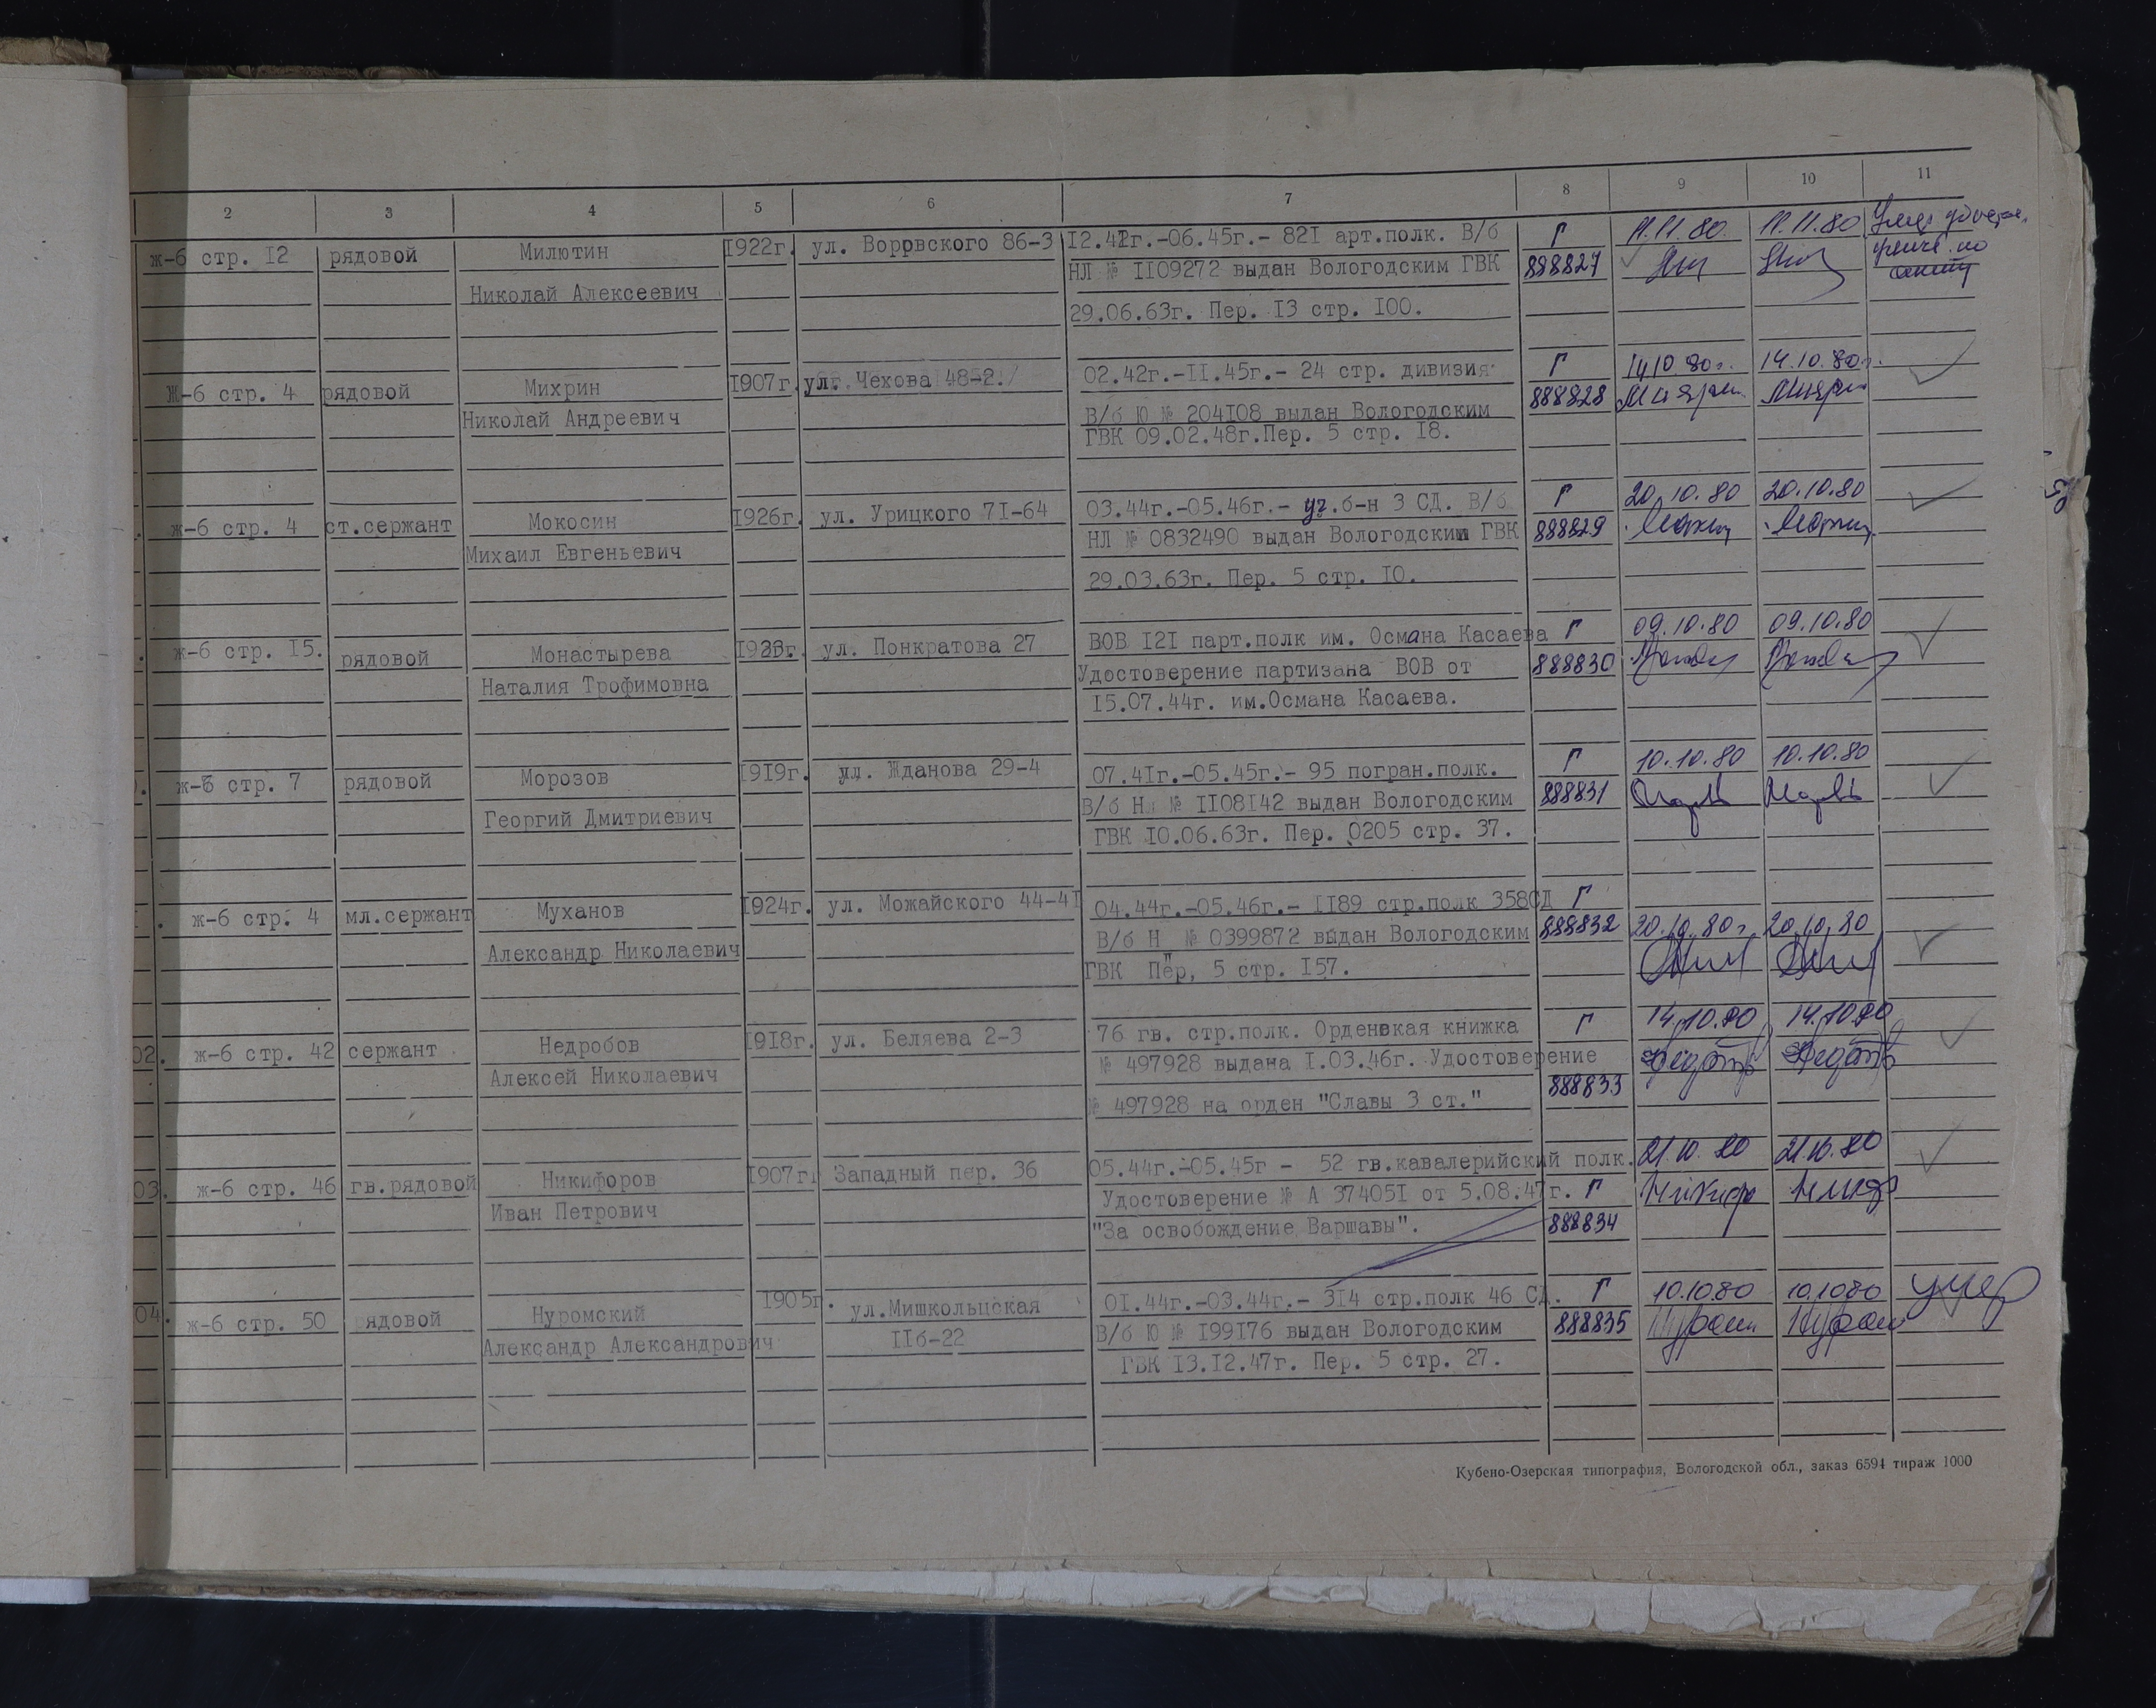 2 3 4 5 6 7 8 9 10 11
ж-б стр. 12 рядовой Милютин 1922г. ул. Воровского 86-3 12.42г.-06.45г.- 821 арт.полк. В/б Г 11.11.80. 11.11.80
Николай Алексеевич НЛ № 1109272 выдан Вологодским ГВК 888827
29.06.63г. Пер. 13 стр. 100.
Ж-б стр. 4 рядовой Михрин 1907г. ул. Чехова 48-2. 02.42г.-11.45г.- 24 стр. дивизия Г 14.10.80г. 14.10.80г.
Николай Андреевич В/б Ю № 204108 выдан Вологодским 888828
ГВК 09.02.48г.Пер. 5 стр. 18.
ж-б стр. 4 ст.сержант Мокосин 1926г. ул. Урицкого 71-64 03.44г.-05.46г.- уч.б-н 3 СД. В/б Г 20.10.80 20.10.80
Михаил Евгеньевич НЛ № 0832490 выдан Вологодским ГВК 888829
29.03.63г. Пер. 5 стр. 10.
ж-б стр. 15. рядовой Монастырева ул. Понкратова 27 ВОВ 121 парт.полк им. Османа Касаева Г 09.10.80 09.10.80
Наталия Трофимовна Удостоверение партизана ВОВ от 888830
15.07.44г. им.Османа Касаева.
ж-б стр. 7 рядовой Морозов 1919г. ул. Жданова 29-4 07.41г.-05.45г.- 95 погран.полк. Г 10.10.80 10.10.80
Георгий Дмитриевич В/б Нл № 1108142 выдан Вологодским 888831
ГВК 10.06.63г. Пер. 0205 стр. 37.
ж-б стр. 4 мл.сержант Муханов 1924г. ул. Можайского 44-41 04.44г.-05.46г.- 1189 стр.полк 358СД Г
Александр Николаевич В/б Н № 0399872 выдан Вологодским 888832 20.10.80г. 20.10.80
ГВК Пер, 5 стр. 157.
02. ж-б стр. 42 сержант Недробов 1918г. ул. Беляева 2-3 76 гв. стр.полк. Орденская книжка Г 14.10.80 14.10.80
Алексей Николаевич № 497928 выдана 1.03.46г. Удостоверение 888833
№ 497928 на орден "Славы 3 ст."
03. ж-б стр. 46 гв.рядовой Никифоров 1907г. Западный пер. 36 05.44г.-05.45г - 52 гв.кавалерийский полк. 21.10.80 21.10.80
Иван Петрович Удостоверение № А 374051 от 5.08.47г. Г
"За освобождение Варшавы". 888834
04. ж-б стр. 50 рядовой Нуромский 1905г. ул.Мишкольцская 01.44г.-03.44г.- 314 стр.полк 46 СД. Г 10.10.80 10.10.80 умер
Александр Александрович 11б-22 В/б Ю № 199176 выдан Вологодским 888835
ГВК 13.12.47г. Пер. 5 стр. 27.
Кубено-Озерская типография, Вологодской обл., заказ 6594 тираж 1000